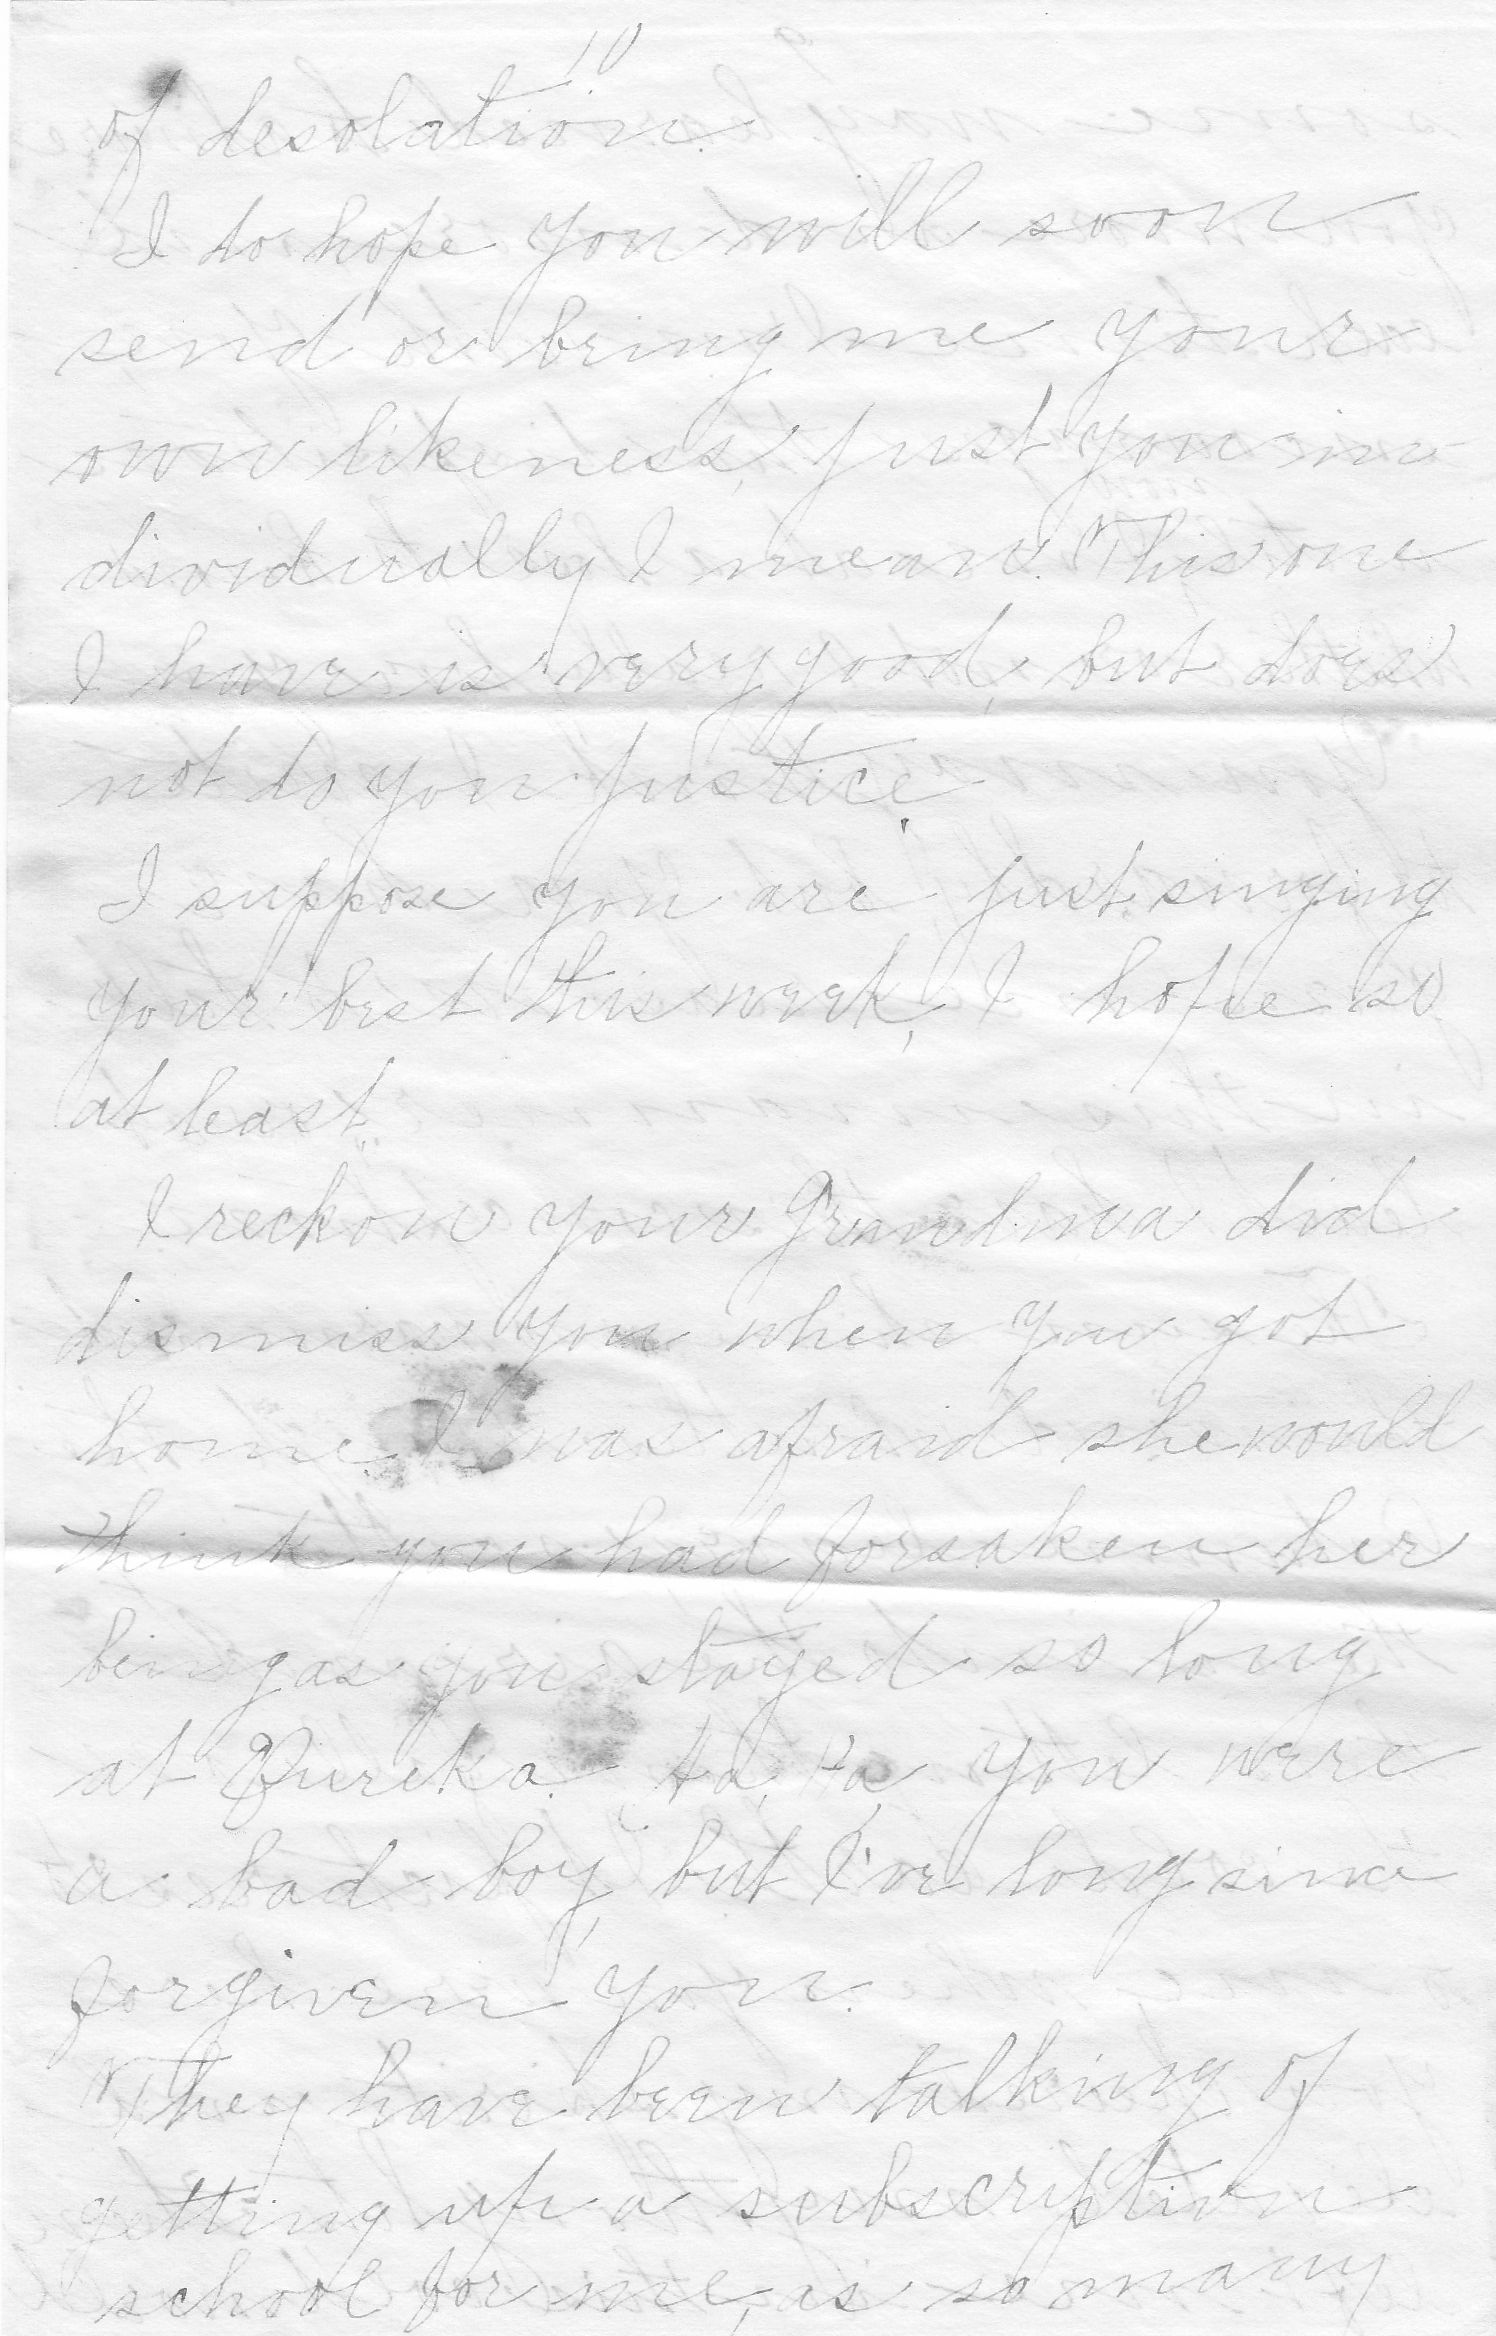 10
of desolation.
I do hope you will soon
send or bring me your
own likeness, just you in-
dividually I mean. This one
I have is very good, but does
not do you justice.
I suppose you are just singing
your best this week, I hope so
at least.
I reckon your Grandma did
dismiss you when you got
home. I was afraid she would
think you had forsaken her
being as you stayed so long
at Eureka. Ha, Ha, you were
a bad boy, but I've long since
forgiven you.
They have been talking of
getting up a subscription
school for me, as so many